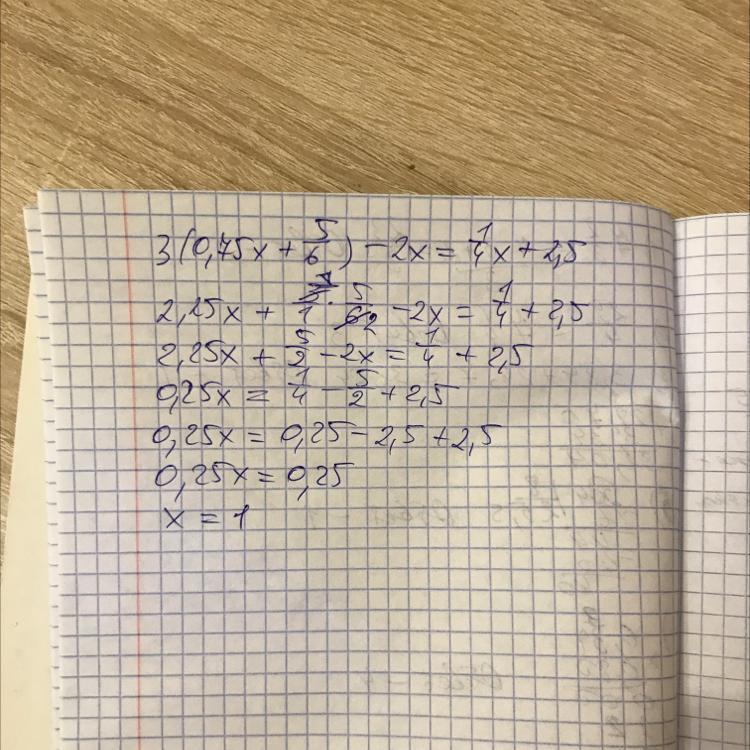 3(0,75x + 5/6) - 2x = 1/4x + 2,5
2,25x + 3̶ 1/1 · 5/6̶ 2 - 2x = 1/4 + 2,5
2,25x + 5/2 - 2x = 1/4 + 2,5
0,25x = 1/4 - 5/2 + 2,5
0,25x = 0,25 - 2,5 + 2,5
0,25x = 0,25
x = 1